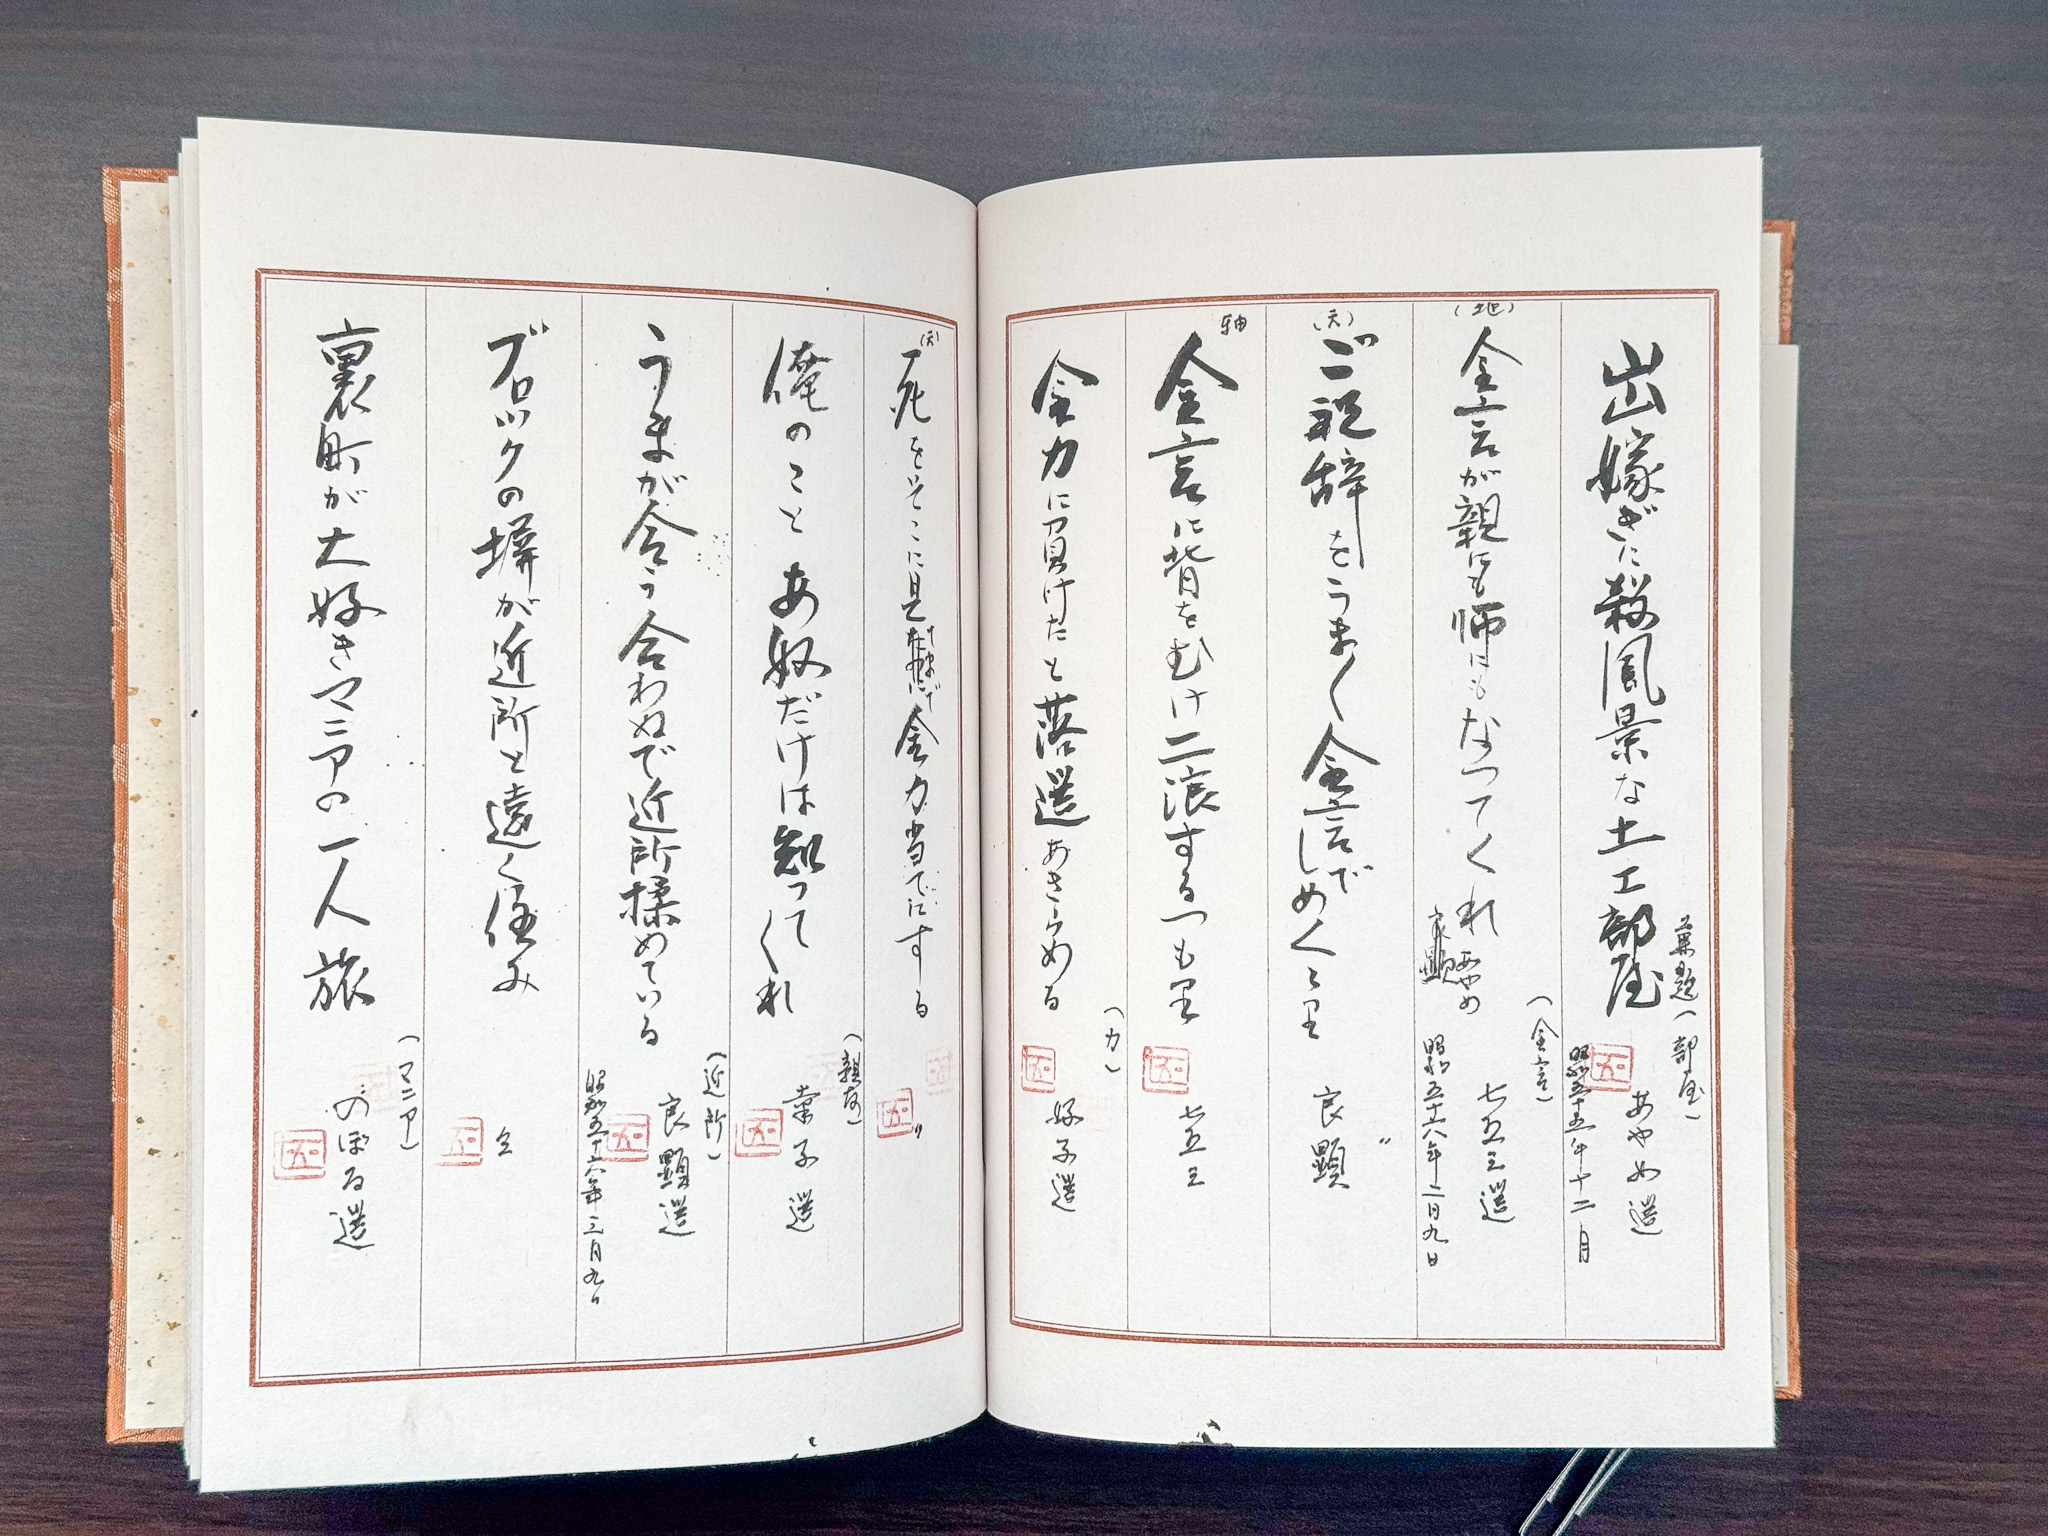 出嫁ぎに殺風景な土工部屋
兼題(部屋)
あやめ選
昭和五十五年十二月
(地)
金言が親にも師にもなってくれ
(金言)
七五三選
昭和五十六年二月九日
(天)
ご祝辞をうまく金言でしめくゝり
〃
良顕
軸
金言に背をむけ二浪するつもり
七五三
金力に負けたと落選あきらめる
(力)
好子選
(天)
金力当てにする
〃
俺のことあ奴だけは知ってくれ
(親友)
選
うまが合う合わぬで近所揉めている
(近所)
良顕選
昭和五十六年三月九日
ブロックの塀が近所と遠く住み
裏町が大好きマニアの一人旅
(マニア)
のぼる選